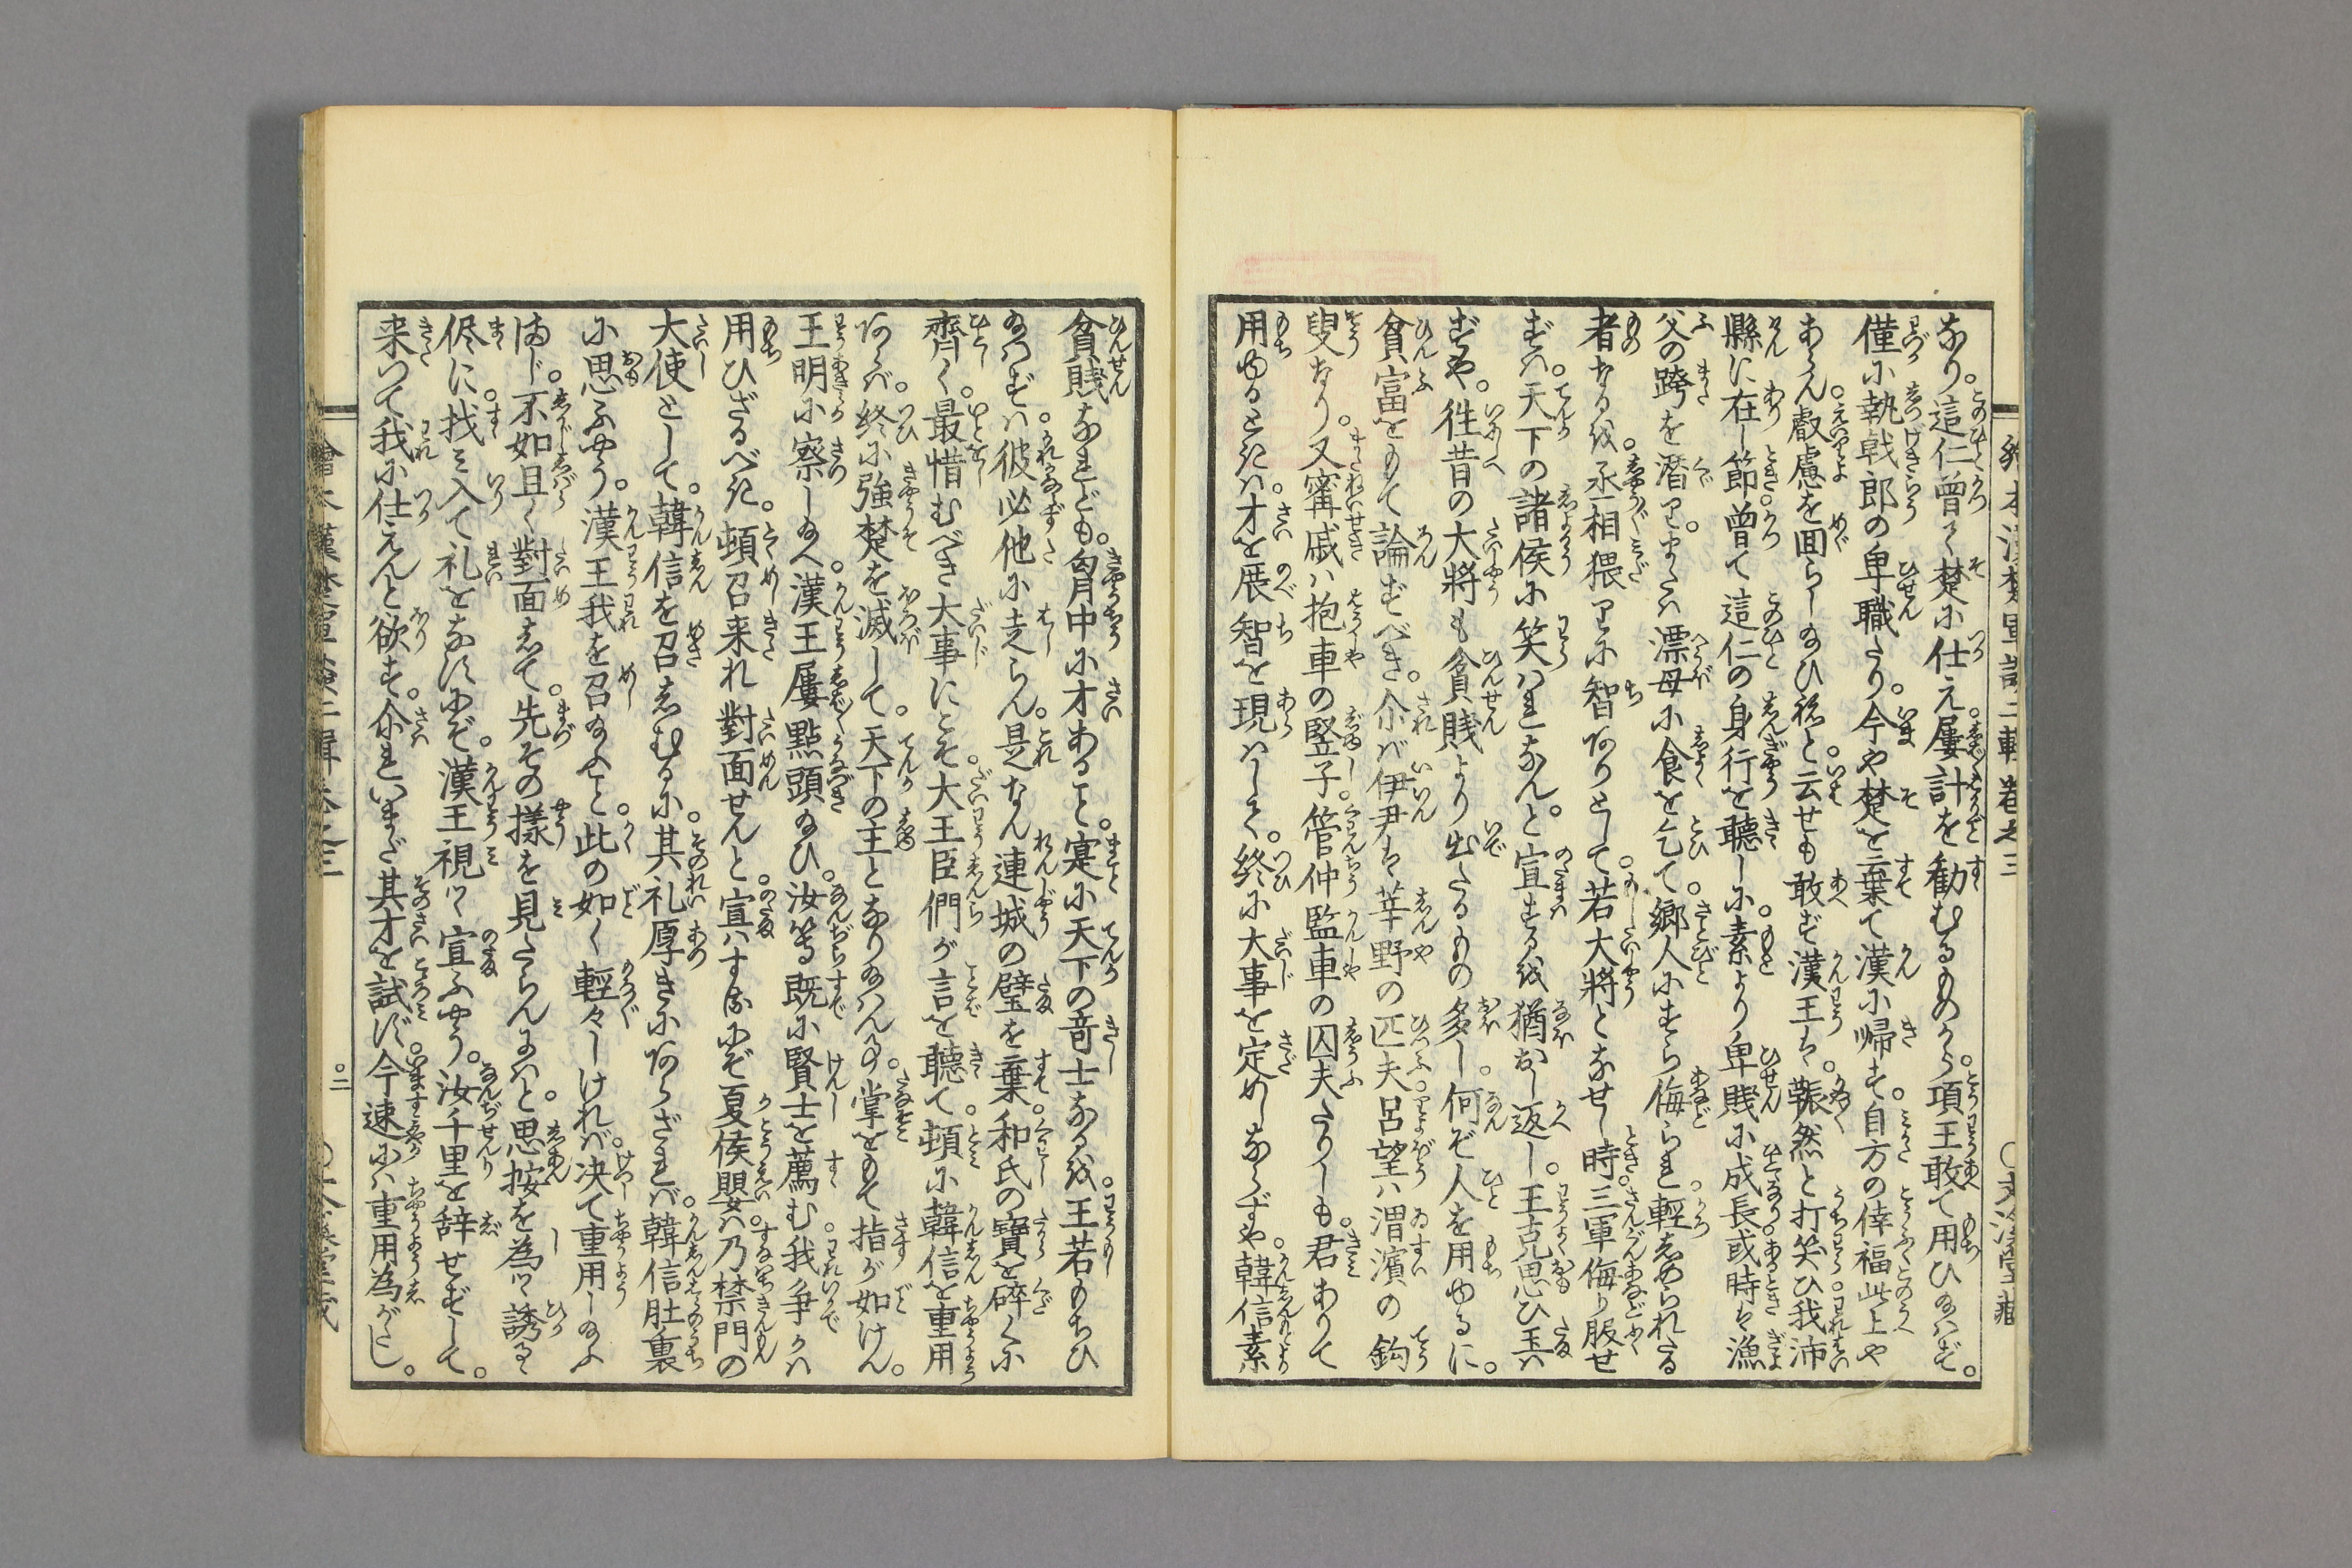 なり。這仁曾て楚に仕え。屢計を勧むるものから。項王敢て用ひ給はず。
僅に執戟郎の卑職たり。今や楚を棄て漢に帰す。自方の倖福此上や
あらん。叡慮を回らし給ひねと。云せも敢ず漢王は。囅然と打笑ひ。我沛
縣に在し節。曾て這仁の身行を聽しに。素より卑賎に成長。或時は漁
父の跨を潜り。または漂母に食を乞て。郷人にすら侮られ。輕しめられたる
者なるを。丞相猥りに智ありとして。若大將となせし時。三軍侮り服せ
ずは。天下の諸侯に笑はれなん。と宣するを猶おし返し。王克思ひ玉は
ずや。往昔の大將も貧賎より出たるもの多し。何ぞ人を用ゆるに。
貧富をもて論ずべき。尒ば伊尹は莘野の匹夫。呂望は渭濱の釣
叟なり。又甯戚は抱車の竪子。管仲監車の囚夫たりしも。君ありて
用ゆるときは。才を展智を現はして。終に大事を定めしならずや。韓信素
繪本漢楚軍談二輯巻之三　○文溪堂藏
貧賎なれども。匈中に才あること。寔に天下の竒士なるを。王若もちひ
給はずは。彼必他に走らん。是なん連城の璧を棄。和氏の寳を碎くに
齊く。最惜むべき大事にこそ。大王臣們が言を聽て。頓に韓信を重用
あらば。終に強楚を滅して。天下の主となり給はん事。掌をもて指が如けん。
王明に察し給へ。漢王屢點頭給ひ。汝等既に賢士を薦む。我争かは
用ひざるべき。頓召来れ對面せんと。宣はするにぞ夏侯嬰は。乃禁門の
大使として。韓信を召しむるに。其礼厚きにあらざれば。韓信肚裏
に思ふやう。漢王我を召給ふこと。此の如く輕々しければ。决て重用し給ふ
まじ。不如且く對面して。先その様を見たらんには。と思按を為つゝ誘るゝ
侭に。找み入て礼をなすにぞ。漢王視つゝ宣ふやう。汝千里を辞せずして。
来つて我に仕えんと欲す。尒れいまだ其才を試ず。今速には重用為がたし。
繪本漢楚軍談二輯巻之三　○二　○文溪堂藏